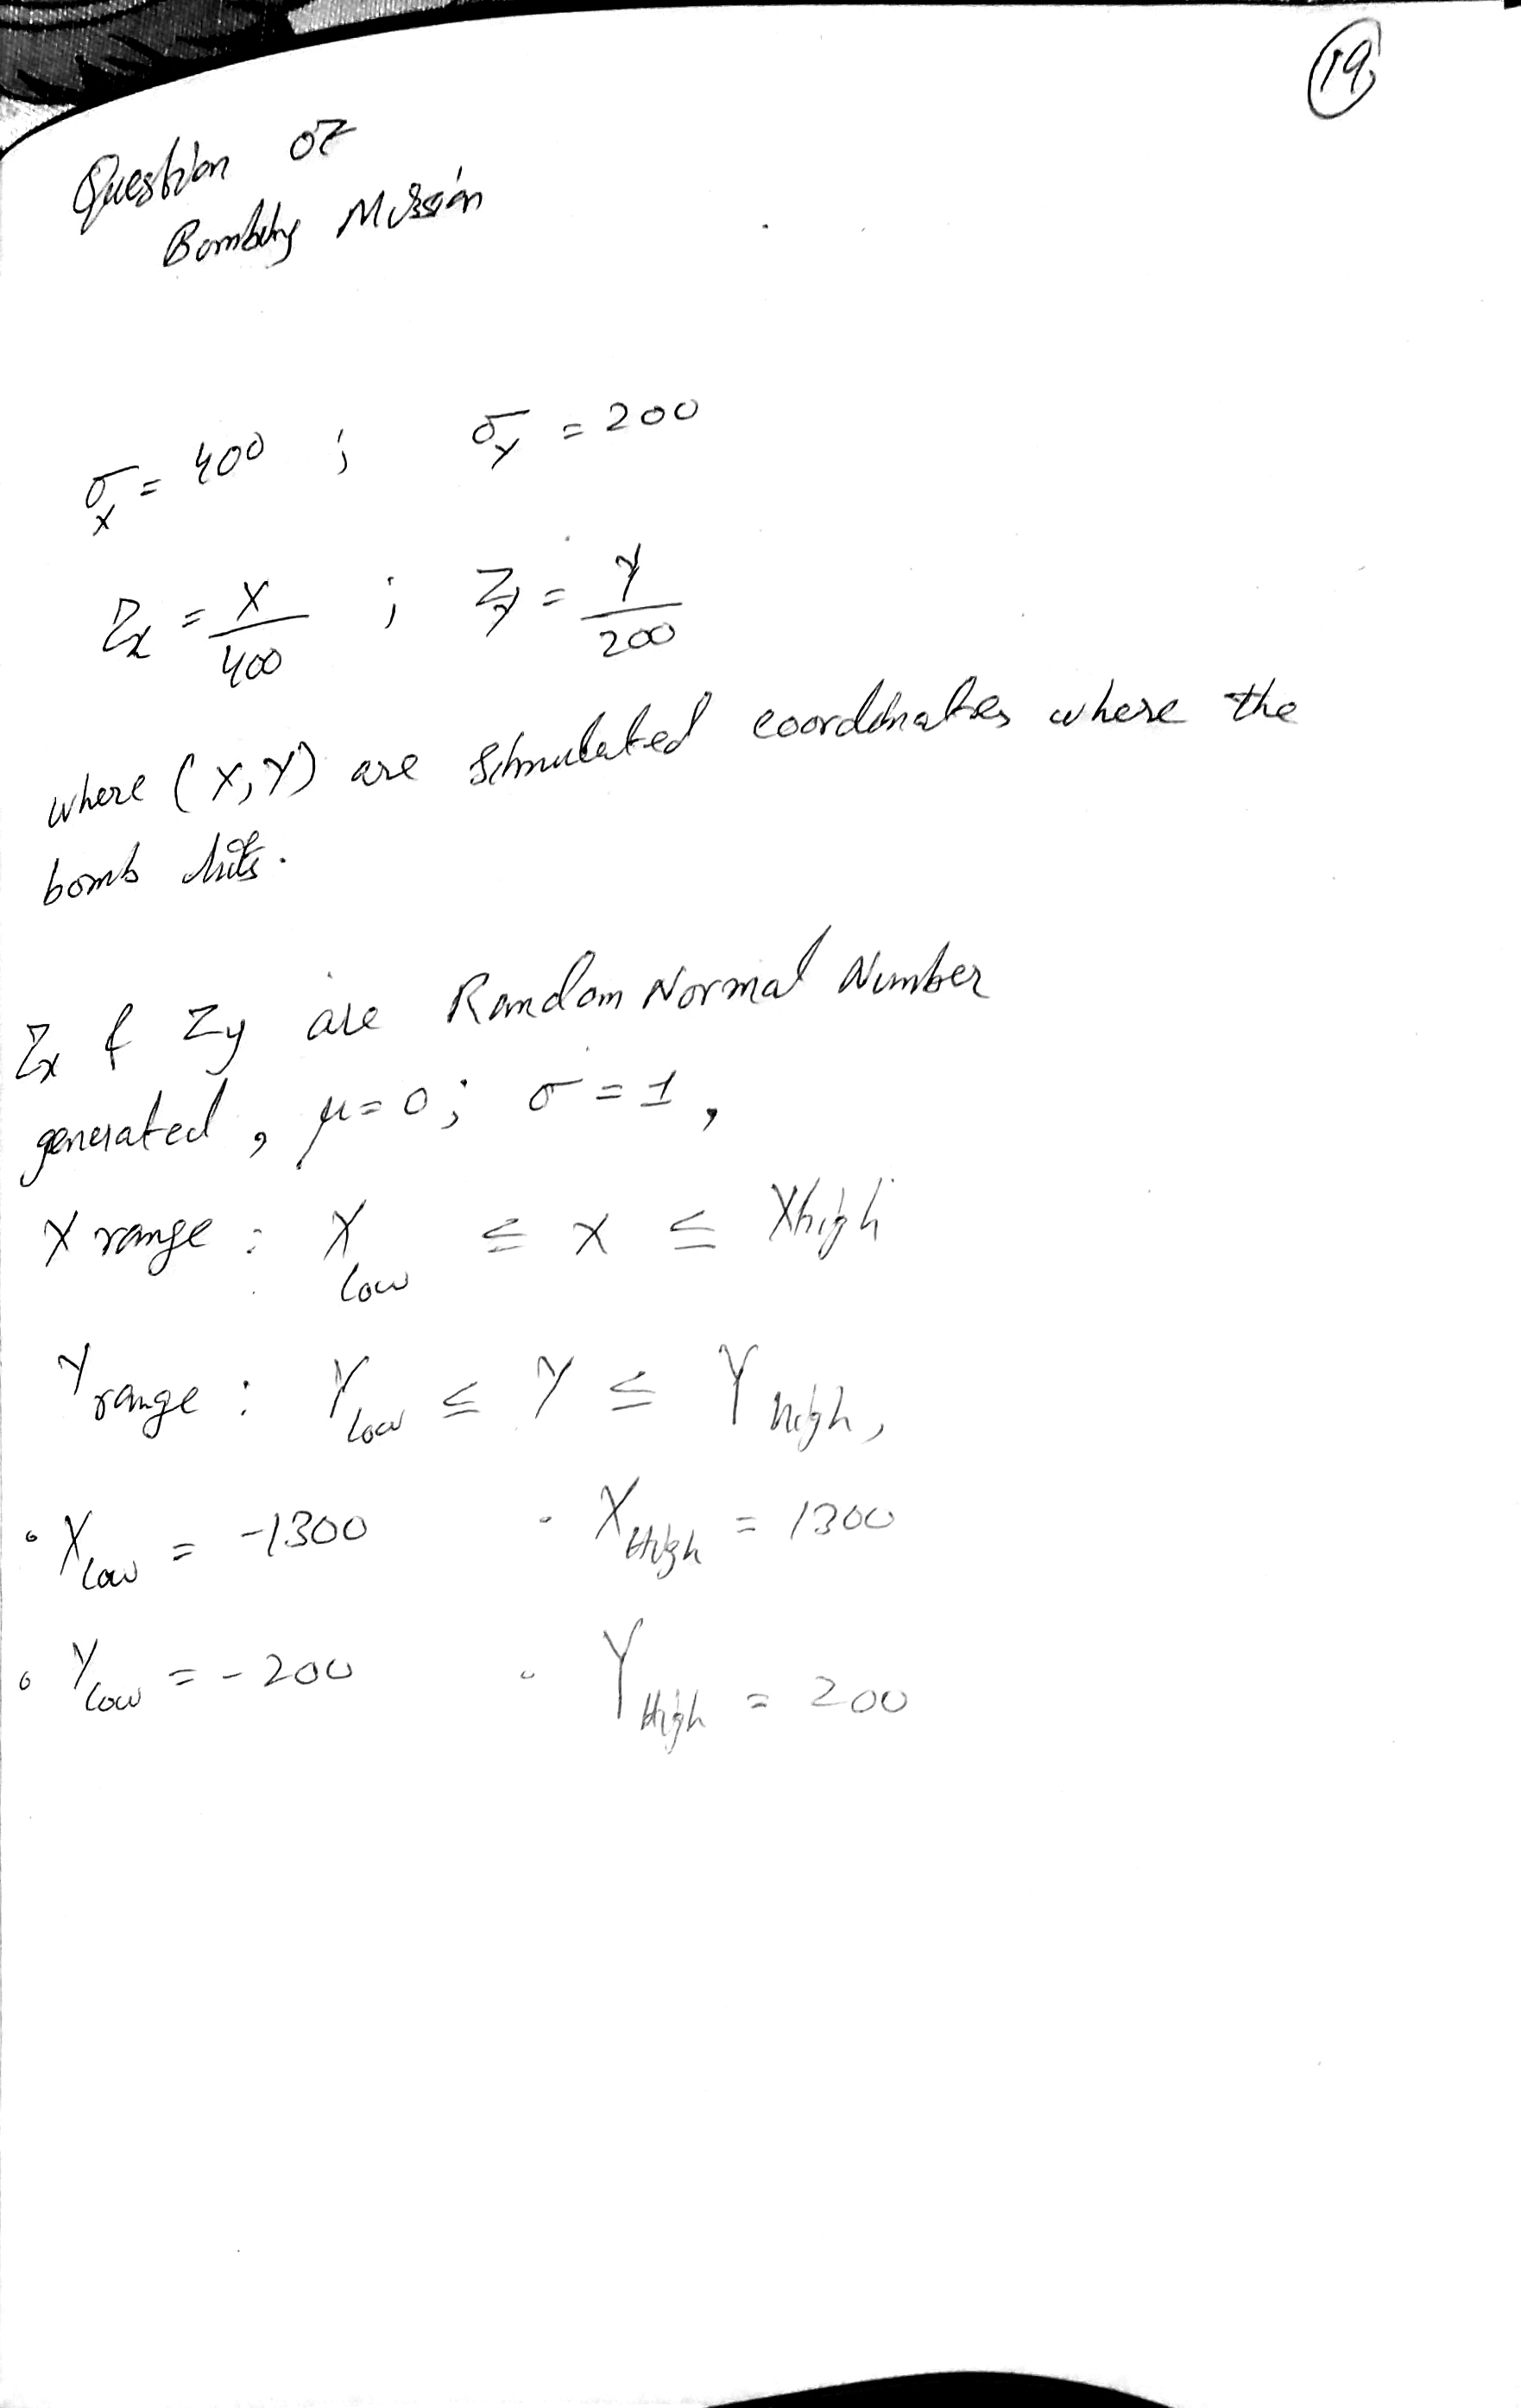 19
Question 07
Bombing Mission
σx = 400 ; σy = 200
Zx = X/400 ; Zy = Y/200
where (X, Y) are Simulated coordinates where the
bomb hits.
Zx & Zy are Random Normal Number
generated, μ=0; σ=1,
X range : X low ≤ X ≤ Xhigh
Y range : Y low ≤ Y ≤ Y high,
• X low = -1300 • X High = 1300
• Y low = -200 • Y High = 200